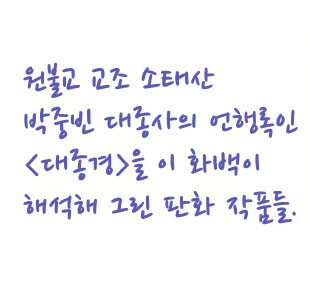 원불교 교조 소태산
박중빈 대종사의 언행록인
<대종경>을 이 화백이
해석해 그린 판화 작품들.